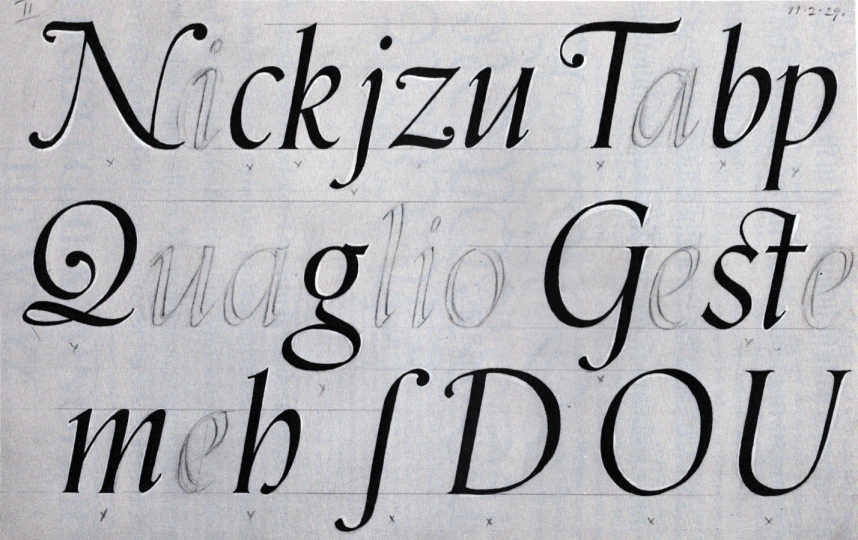 II 11·2·29.
Nickjzu Tabp
Quaglio Geste
meh ſDOU